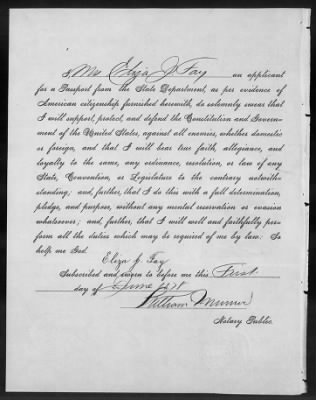 I, Mrs Eliza J. Fay an applicant
for a Passport from the State Department, as per evidence of
American citizenship furnished herewith, do solemnly swear that
I will support, protect, and defend the Constitution and Govern-
ment of the United States, against all enemies, whether domestic
or foreign, and that I will bear true faith, allegiance, and
loyalty to the same, any ordinance, resolution, or law of any
State, Convention, or Legislature to the contrary notwith-
standing; and, further, that I do this with a full determination,
pledge, and purpose, without any mental reservation or evasion
whatsoever; and, further, that I will well and faithfully per-
form all the duties which may be required of me by law. So
help me God.
Eliza J. Fay
Subscribed and sworn to before me this First
day of June
William
Notary Public.